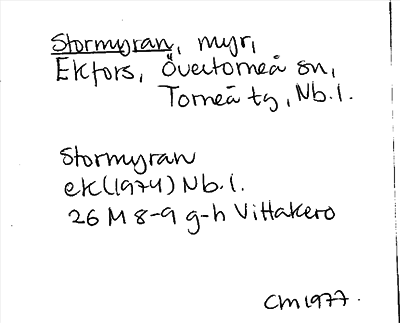 Stormyran, myr,
Ekfors, Övertorneå sn,
Torneå tg, Nb.l.
Stormyran
ek (1974) Nb.l.
26 M 8-9 g-h Vittakero
CM 1977.